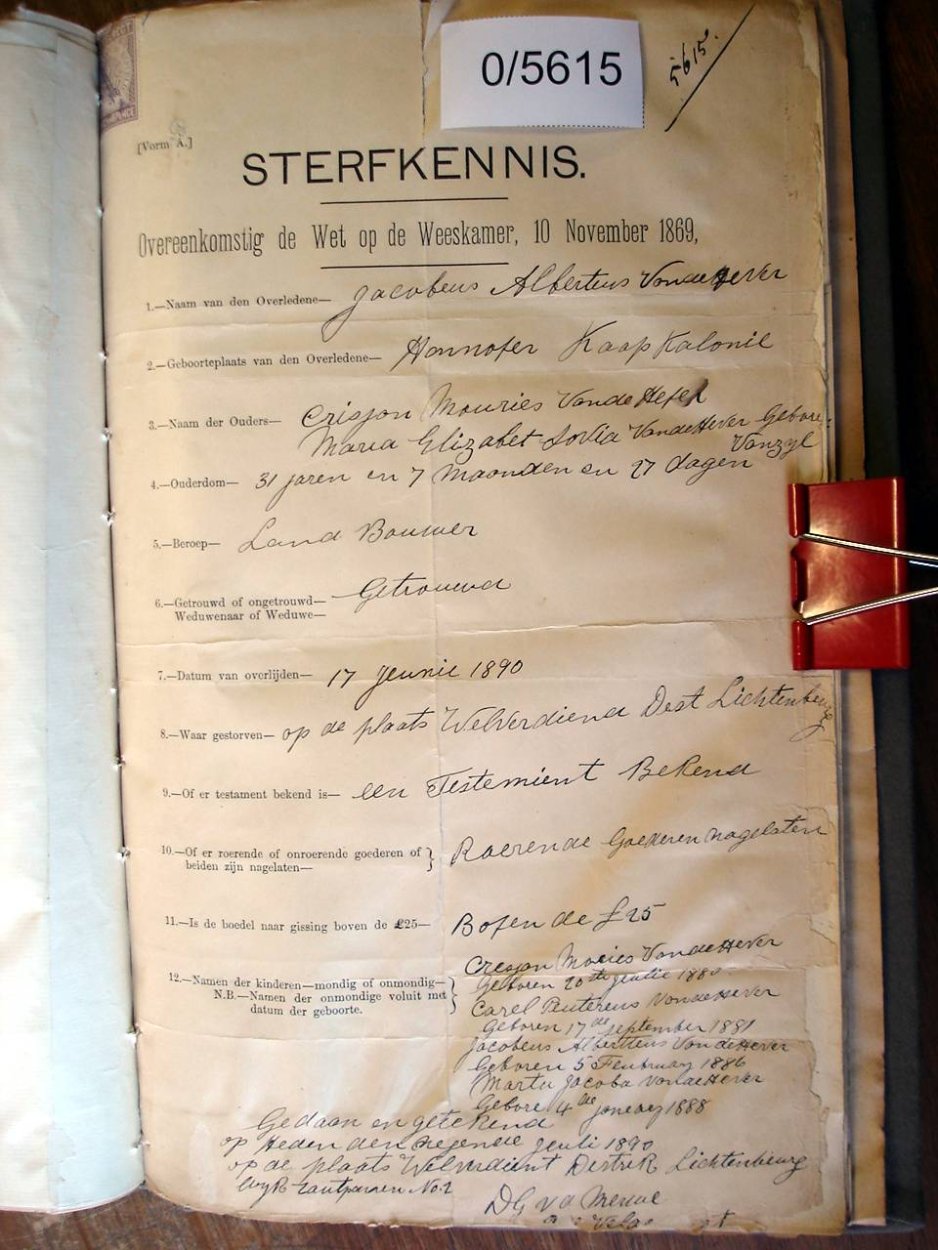 0/5615
5615.
[Vorm A.]
STERFKENNIS.
Overeenkomstig de Wet op de Weeskamer, 10 November 1869,
1.—Naam van den Overledene— Jacobeus Alberteus VandeHever
2.—Geboorteplaats van den Overledene— Hannofer Kaap Kalonie
3.—Naam der Ouders— Crisjan Mouries VandeHefer
Maria Elizabet Sovia VandeHever Gebore
Vanzyl
4.—Ouderdom— 31 jaren en 7 Maanden en 27 dagen
5.—Beroep— Land Bouwer
6.—Getrouwd of ongetrouwd— Getrouwd
Weduwenaar of Weduwe—
7.—Datum van overlijden— 17 Jeunie 1890
8.—Waar gestorven— op de plaats Welverdiend Dest Lichtenburg
9.—Of er testament bekend is— een Testemient Bekend
10.—Of er roerende of onroerende goederen of Roerende Goederen nagelaten
beiden zijn nagelaten—
11.—Is de boedel naar gissing boven de £25— Bofen de £25
12.—Namen der kinderen—mondig of onmondig—
N.B.—Namen der onmondige voluit met
datum der geboorte.
Cresjan Moeries VandeHever
Geboren 20ste Jeulie 1880
Carel Peuterus VandeHever
Geboren 17de September 1881
Jacobeus Albertteus VandeHever
Geboren 5 Feubruary 1886
Marta Jacoba VandeHever
Gebore 4de 1888
Gedaan en getekend
op Heden den negende Jeuli 1890
op de plaats Welverdient Destrek Lichtenbeurg
Wyk No.2
DG v d Merwe